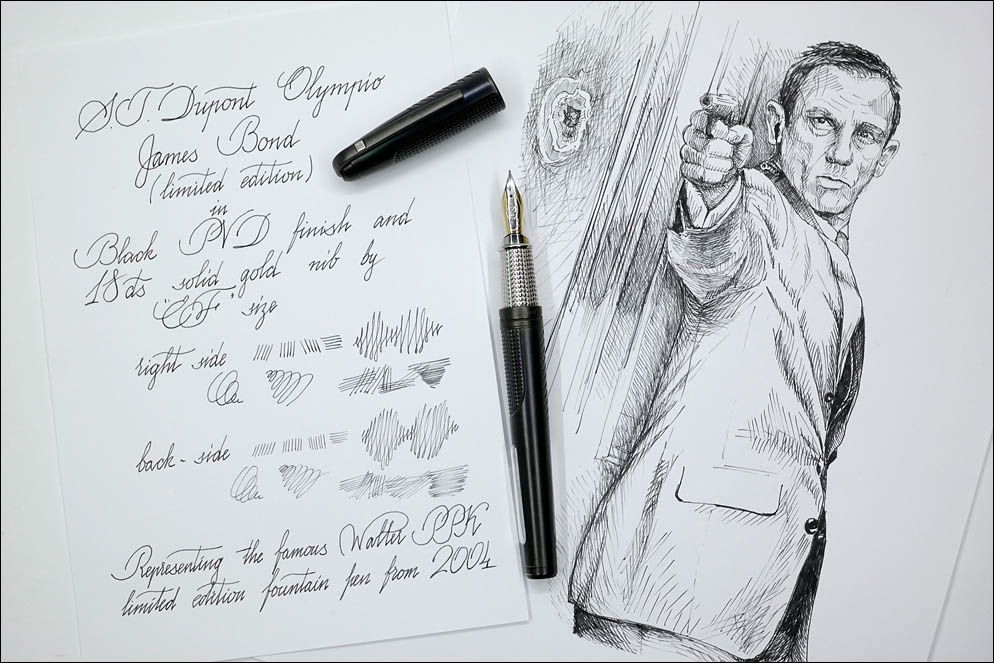 S.T. Dupont Olympio
James Bond
(limited edition)
in
Black PVD finish and
18cts solid gold nib by
"EF" size
right side
back-side
Representing the famous Walter PPK
limited edition fountain pen from 2004